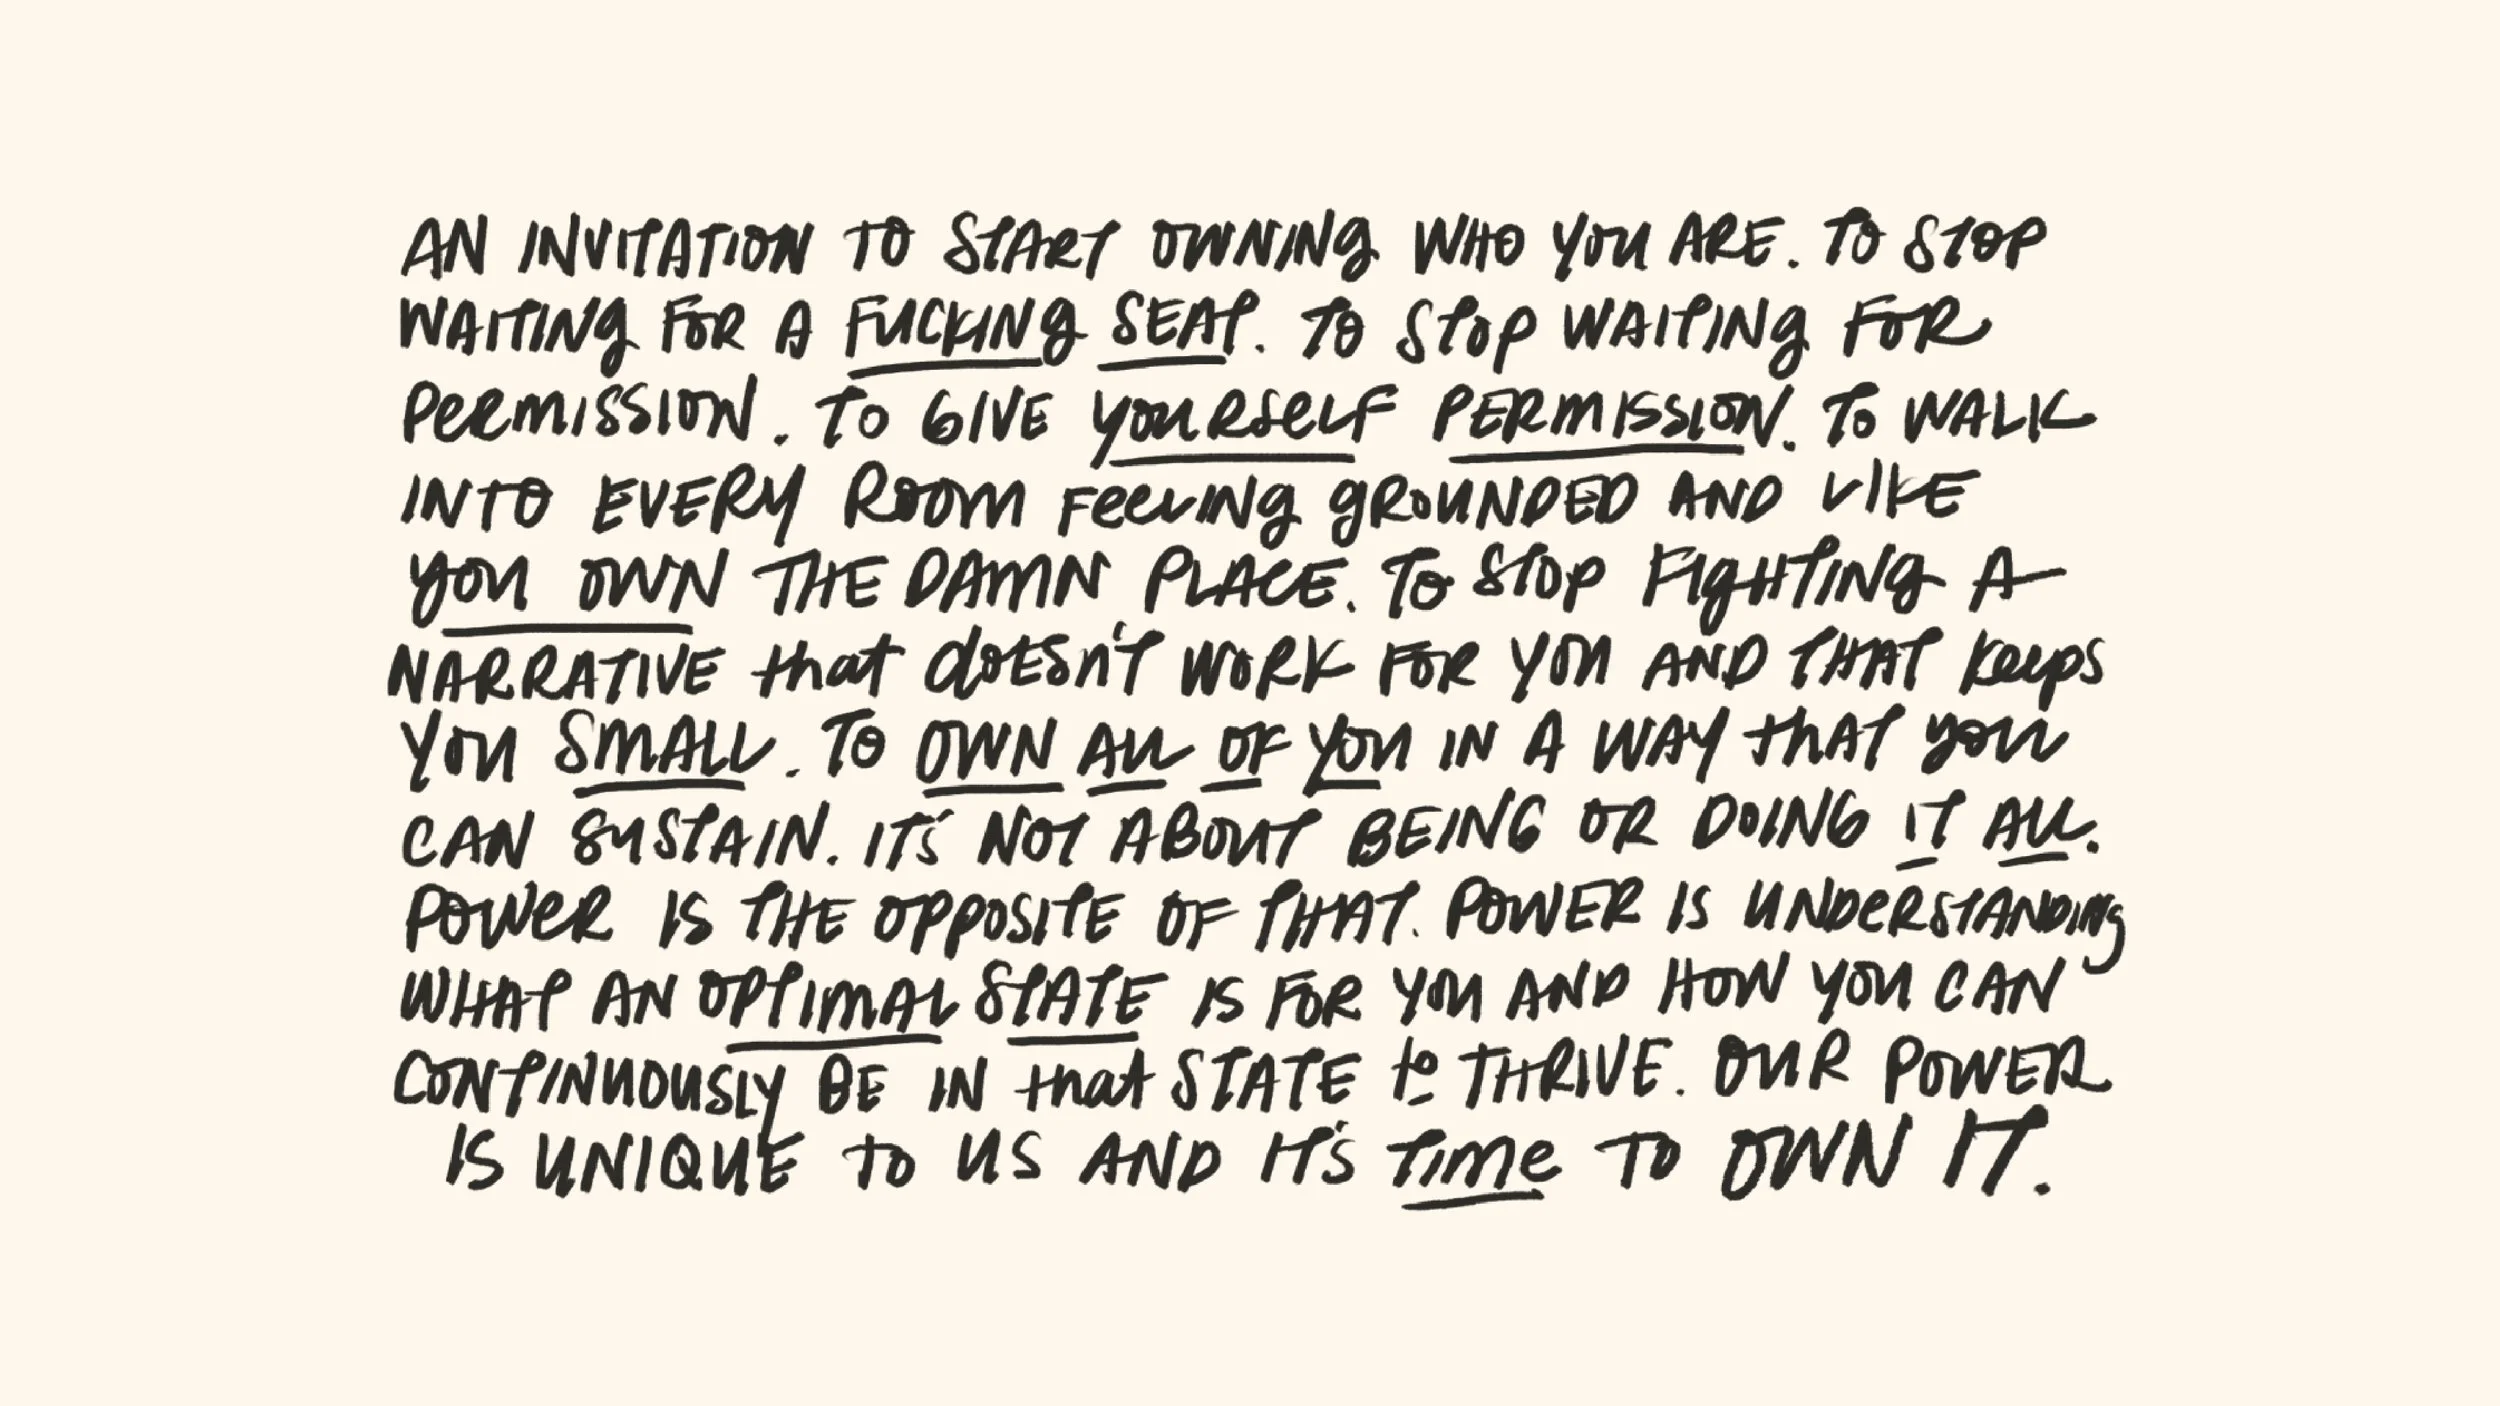 AN INVITATION TO START OWNING WHO YOU ARE. TO STOP
WAITING FOR A FUCKING SEAT. TO STOP WAITING FOR
PERMISSION. TO GIVE YOURSELF PERMISSION. TO WALK
INTO EVERY ROOM FEELING GROUNDED AND LIKE
YOU OWN THE DAMN PLACE. TO STOP FIGHTING A
NARRATIVE that doesn't WORK FOR YOU AND THAT keeps
YOU SMALL. TO OWN ALL OF YOU IN A WAY that you
CAN SUSTAIN. IT'S NOT ABOUT BEING OR DOING IT ALL.
POWER IS THE OPPOSITE OF THAT. POWER IS UNDERSTANDING
WHAT AN OPTIMAL STATE IS FOR YOU AND HOW YOU CAN
CONTINUOUSLY BE IN that STATE to THRIVE. OUR POWER
IS UNIQUE to US AND IT'S TIME TO OWN IT.